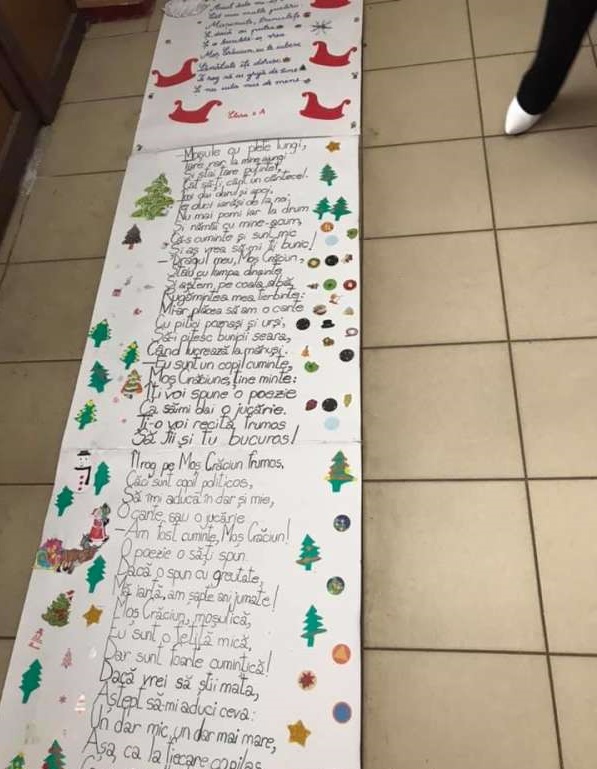 Moș Crăciun, eu te iubesc
Sănătate îți doresc
Te rog să ai grijă de tine
Și nu uita nici de mine
Clasa a A
-Moșule cu plete lungi,
Tare rar la mine ajungi
Și stai tare puțintel,
Cât să-ți cânt un cântecel.
Îmi dai darul și apoi,
Te duci iarăși de la noi;
Nu mai porni iar la drum
Și rămâi cu mine-acum,
Că-s cuminte și sunt mic
Și aș vrea să-mi fii bunic!
-Dragul meu, Moș Crăciun,
Stând cu lampa dinainte
Și aștern pe coala albă,
Rugămintea mea fierbinte:
Mi-ar plăcea să am o carte
Cu pitici poznași și urși,
Să-i citesc bunicii seara,
Când lucrează la mănuși.
-Eu sunt un copil cuminte,
Moș Crăciune, ține minte:
Îți voi spune o poezie
Ca să-mi dai o jucărie.
Ți-o voi recita frumos
Să fii și tu bucuros!
Îl rog pe Moș Crăciun frumos,
Căci sunt copil politicos,
Să îmi aducă în dar și mie,
O carte sau o jucărie
-Am fost cuminte, Moș Crăciun!
O poezie o să-ți spun.
Dacă o spun cu greutate,
Mă iartă, am șapte ani jumate!
Moș Crăciun, moșulică,
Eu sunt o fetiță mică,
Dar sunt foarte cumințică!
Dacă vrei să știi mata,
Aștept să-mi aduci ceva:
Un dar mic, un dar mai mare,
Așa, ca la fiecare copilaș